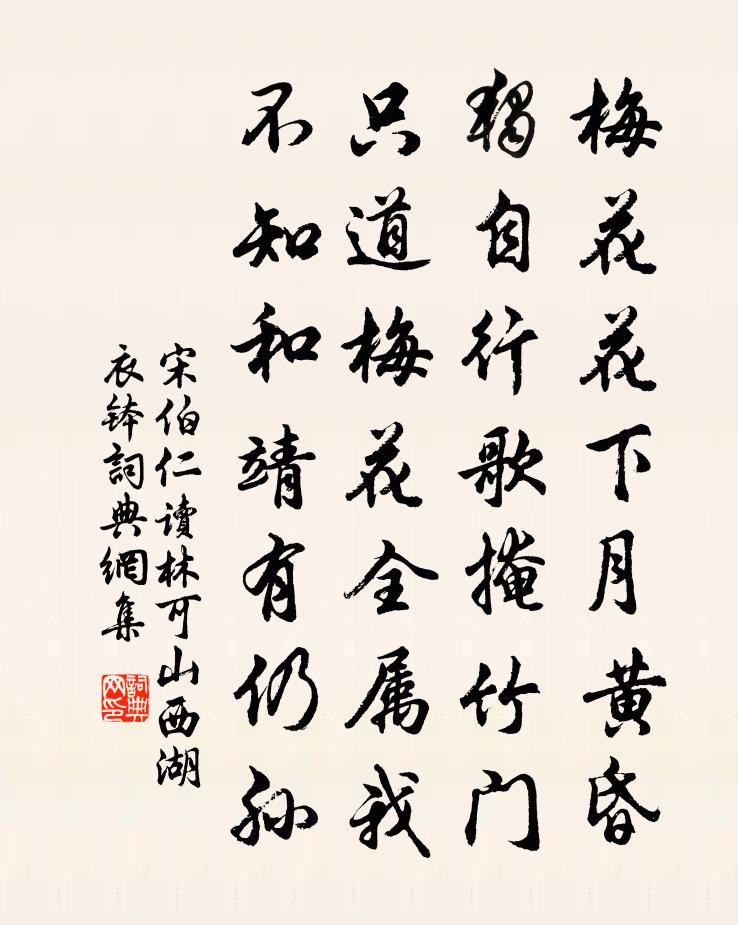 梅花花下月黄昏
獨自行歌掩竹门
只道梅花全属我
不知和靖有仍孙
宋伯仁读林可山西湖
衣钵詞典網集
詞典网印